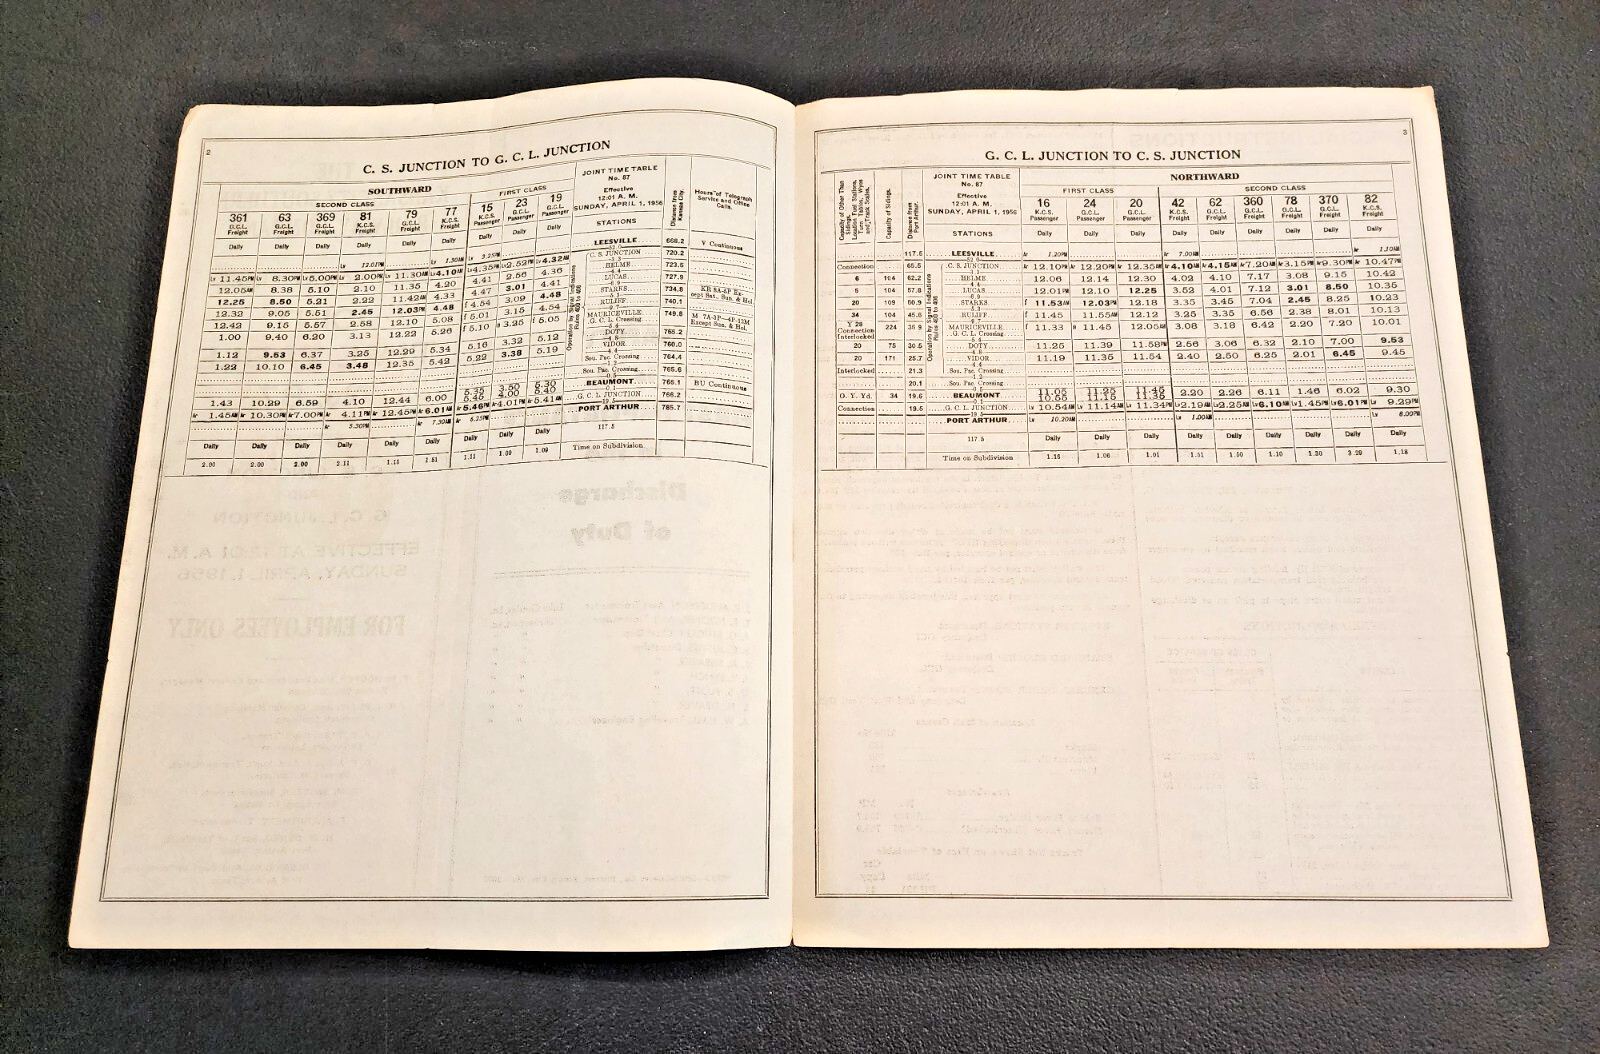 2
C. S. JUNCTION TO G. C. L. JUNCTION
SOUTHWARD
SECOND CLASS
FIRST CLASS
JOINT TIME TABLE
No. 87
Effective
12:01 A. M.
SUNDAY, APRIL 1, 1956
STATIONS
Distance from Kansas City.
Hours of Telegraph Service and Office Calls.
361 63 369 81 79 77 15 23 19
G.C.L. Freight G.C.L. Freight G.C.L. Freight K.C.S. Freight G.C.L. Freight K.C.S. Freight K.C.S. Passenger G.C.L. Passenger G.C.L. Passenger
Daily Daily Daily Daily Daily Daily Daily Daily Daily
Lv 12.01PM Lv 1.30AM Lv 3.25PM LEESVILLE 668.2 V Continuous
Lv 11.45PM Lv 8.30PM Lv 5.00PM Lv 2.00PM Lv 11.30AM Lv 4.10AM Lv 4.35PM Lv 2.52PM Lv 4.32AM C. S. JUNCTION 720.2
12.05AM 8.38 5.10 2.10 11.35 4.20 4.41 2.56 4.36 HELME 723.5
12.25 8.50 5.21 2.22 11.42AM 4.33 4.47 3.01 4.41 LUCAS 727.9
12.32 9.05 5.51 2.45 12.03PM 4.48 f 4.54 3.09 4.48 STARKS 734.8 KR 8A-5P Except Sat. Sun. & Hol.
12.42 9.15 5.57 2.58 12.10 5.08 f 5.01 3.15 4.54 RULIFF 740.1
1.00 9.40 6.20 3.13 12.22 5.26 f 5.10 s 3.25 f 5.05 MAURICEVILLE 749.8 M 7A-3P—4P-12M Except Sun. & Hol.
G. C. L. Crossing
1.12 9.53 6.37 3.25 12.29 5.34 5.16 3.32 5.12 DOTY 755.2
1.22 10.10 6.45 3.48 12.35 5.42 5.22 3.38 5.19 VIDOR 760.0
Sou. Pac. Crossing 764.4
Sou. Pac. Crossing 765.6
1.43 10.29 6.59 4.10 12.44 6.00 5.35 5.45 3.50 4.00 5.30 5.40 BEAUMONT 766.1 BU Continuous
Ar 1.45AM Ar 10.30PM Ar 7.00PM Ar 4.11PM Ar 12.45PM Ar 6.01AM Ar 5.46PM Ar 4.01PM Ar 5.41AM G. C. L. JUNCTION 766.2
Ar 5.30PM Ar 7.30AM Ar 6.25PM PORT ARTHUR 785.7
Daily Daily Daily Daily Daily Daily Daily Daily Daily 117.5
2.00 2.00 2.00 2.11 1.15 1.51 1.11 1.09 1.09 Time on Subdivision
Operation by Signal Indications
Rules 400 to 406
3
G. C. L. JUNCTION TO C. S. JUNCTION
Capacity of Other Than Sidings. Location Fuel Stations, Turn Tables, Wyes and Track Scales.
Capacity of Sidings.
Distance from Port Arthur.
JOINT TIME TABLE
No. 87
Effective
12:01 A. M.
SUNDAY, APRIL 1, 1956
STATIONS
NORTHWARD
FIRST CLASS
SECOND CLASS
16 24 20 42 62 360 78 370 82
K.C.S. Passenger G.C.L. Passenger G.C.L. Passenger K.C.S. Freight G.C.L. Freight G.C.L. Freight G.C.L. Freight G.C.L. Freight K.C.S. Freight
Daily Daily Daily Daily Daily Daily Daily Daily Daily
117.5 LEESVILLE Ar 1.20PM Ar 7.00AM Ar 1.10AM
Connection 65.5 C. S. JUNCTION Ar 12.10PM Ar 12.20PM Ar 12.35AM Ar 4.10AM Ar 4.15AM Ar 7.20AM Ar 3.15PM Ar 9.30PM Ar 10.47PM
6 104 62.2 HELME 12.06 12.14 12.30 4.02 4.10 7.17 3.08 9.15 10.42
5 104 57.8 LUCAS 12.01PM 12.10 12.25 3.52 4.01 7.12 3.01 8.50 10.35
20 109 50.9 STARKS f 11.53AM 12.03PM 12.18 3.35 3.45 7.04 2.45 8.25 10.23
34 104 45.6 RULIFF f 11.45 11.55AM 12.12 3.25 3.35 6.56 2.38 8.01 10.13
Y 29 Connection Interlocked 224 35.9 MAURICEVILLE f 11.33 s 11.45 12.05AM 3.08 3.18 6.42 2.20 7.20 10.01
G. C. L. Crossing
20 75 30.5 DOTY 11.25 11.39 11.58PM 2.56 3.06 6.32 2.10 7.00 9.53
20 171 25.7 VIDOR 11.19 11.35 11.54 2.40 2.50 6.25 2.01 6.45 9.45
Interlocked 21.3 Sou. Pac. Crossing
20.1 Sou. Pac. Crossing
O. Y. Yd. 34 19.6 BEAUMONT 11.05 10.55 11.25 11.15 11.45 11.35 2.20 2.26 6.11 1.46 6.02 9.30
Connection 19.5 G. C. L. JUNCTION Lv 10.54AM Lv 11.14AM Lv 11.34PM Lv 2.19AM Lv 2.25AM Lv 6.10AM Lv 1.45PM Lv 6.01PM Lv 9.29PM
PORT ARTHUR Lv 10.20AM Lv 1.00AM Lv 8.00PM
117.5 Daily Daily Daily Daily Daily Daily Daily Daily Daily
Time on Subdivision 1.16 1.06 1.01 1.51 1.50 1.10 1.30 3.29 1.18
Operation by Signal Indications
Rules 400 to 406